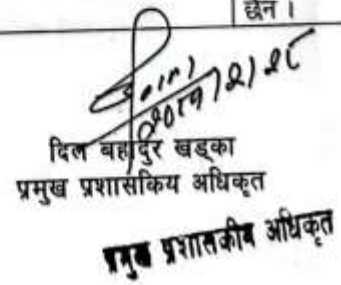 छैन ।
२०८१/२/२८
दिल बहादुर खड्का
प्रमुख प्रशासकिय अधिकृत
प्रमुख प्रशासकीय अधिकृत